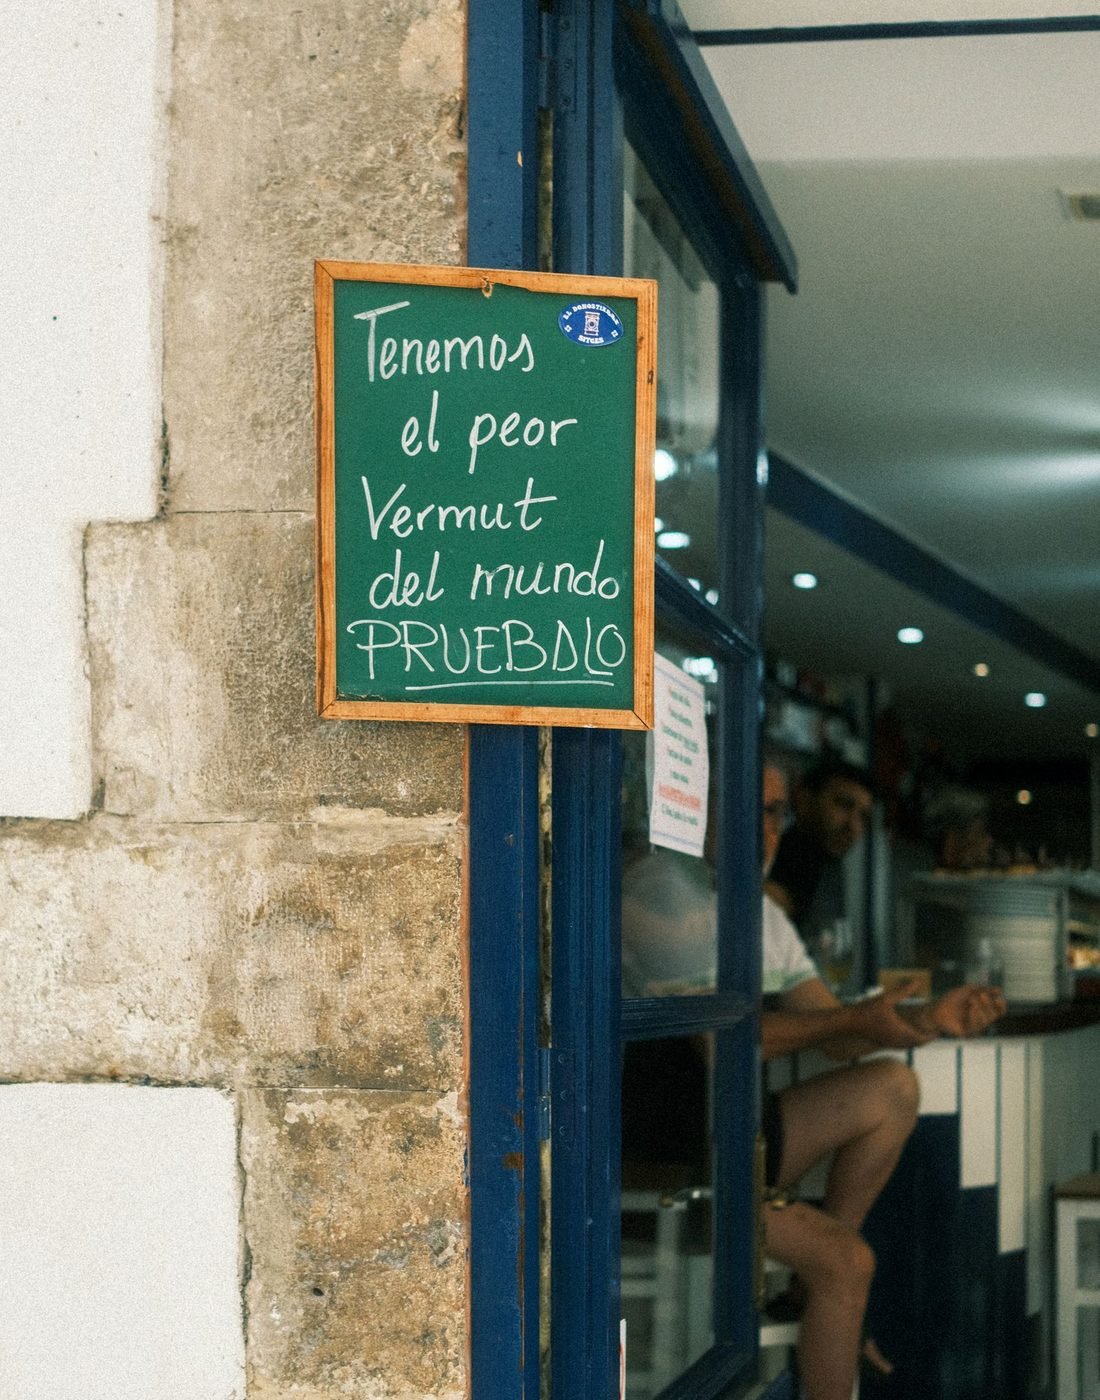 Tenemos
el peor
Vermut
del mundo
PRUEBALO
EL DONOSTIARRA
SITGES